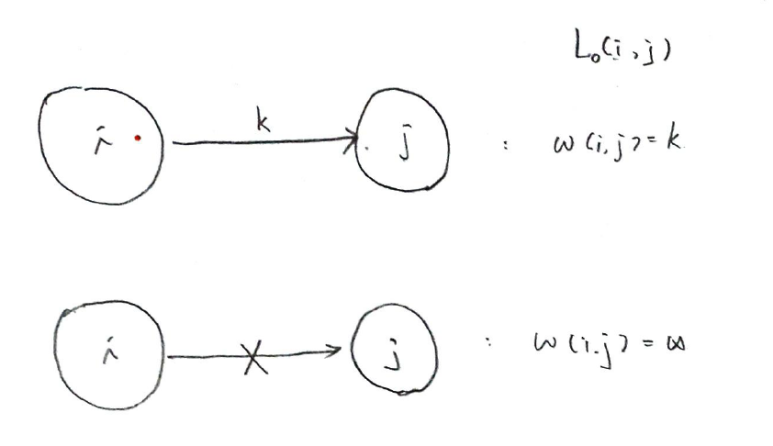 L₀(i,j)
i k j : w(i,j)=k
i j : w(i.j)=∞